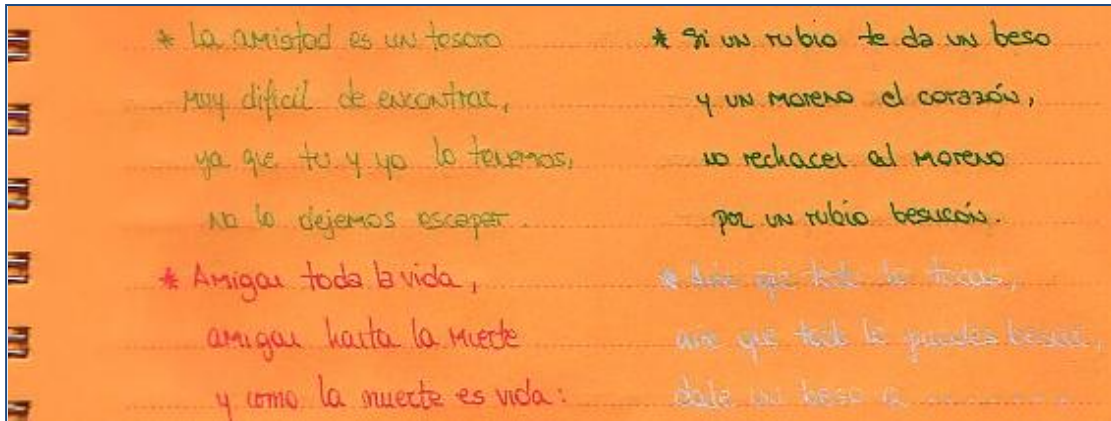 * La amistad es un tesoro
muy dificil de encontrar,
ya que tu y yo lo tenemos,
no lo dejemos escapar.
* Amigas toda la vida,
amigas hasta la muerte
y como la muerte es vida:
* Si un rubio te da un beso
y un moreno el corazón,
no rechaces al moreno
por un rubio besucón.
* Aire que todo lo tocas,
aire que todo lo puedes besar,
dale un beso a ..........